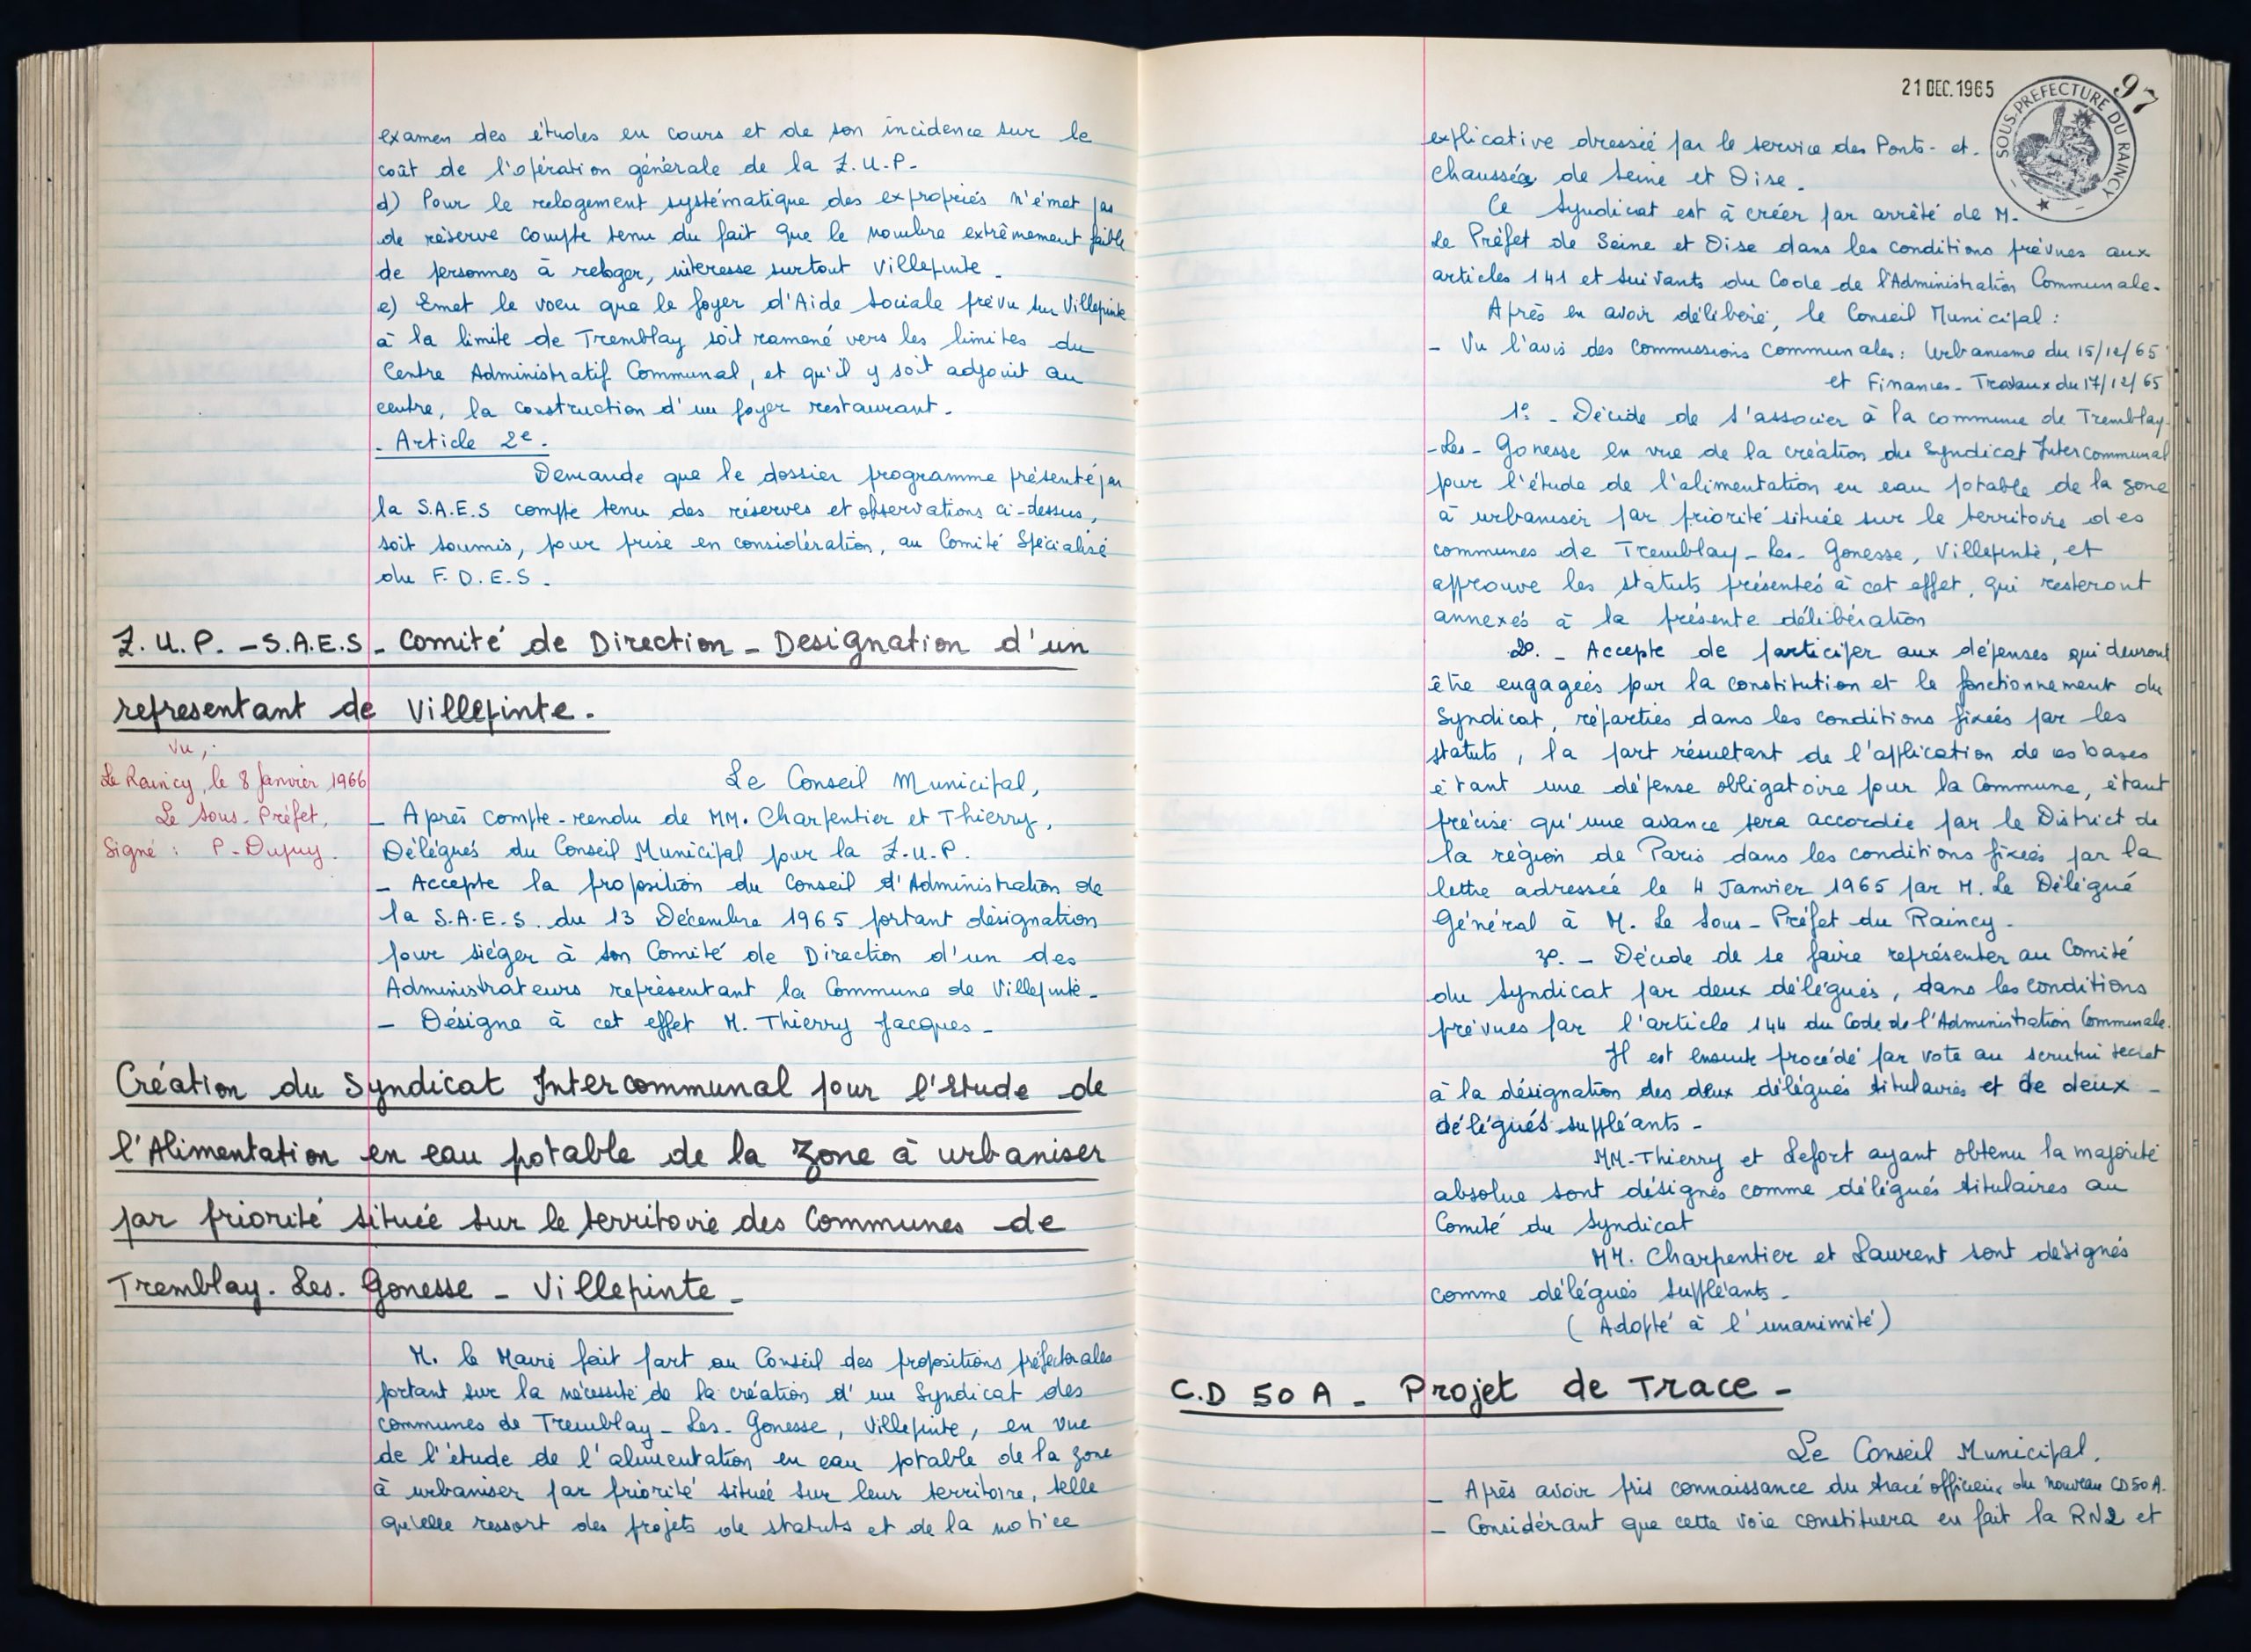 examen des études en cours et de son incidence sur le
coût de l'opération générale de la Z.U.P-
d) Pour le relogement systématique des expropriés n'émet pas
de réserve compte tenu du fait que le nombre extrêmement faible
de personnes à reloger, interesse surtout Villepinte.
e) Emet le voeu que le foyer d'Aide Sociale prévu sur Villepinte
à la limite de Tremblay soit ramené vers les limites du
Centre Administratif Communal, et qu'il y soit adjoint au
centre, la construction d'un foyer restaurant.
- Article 2e.
Demande que le dossier programme présenté par
la S.A.E.S compte tenu des réserves et observations ci-dessus,
soit soumis, pour prise en considération, au Comité Spécialisé
du F.D.E.S.
Z.U.P. - S.A.E.S - Comité de Direction - Designation d'un
representant de Villepinte.
Vu,
Le Raincy, le 8 Janvier 1966
Le Sous-Préfet,
Signé : P. Dupuy.
Le Conseil Municipal,
- Après compte-rendu de MM. Charpentier et Thierry,
Délégués du Conseil Municipal pour la Z.U.P.
- Accepte la proposition du Conseil d'Administration de
la S.A.E.S. du 13 Décembre 1965 portant désignation
pour siéger à son Comité de Direction d'un des
Administrateurs représentant la Commune de Villepinte-
- Désigne à cet effet M. Thierry Jacques-
Création du Syndicat Intercommunal pour l'étude de
l'Alimentation en eau potable de la zone à urbaniser
par priorité située sur le territoire des Communes de
Tremblay. Les. Gonesse - Villepinte-
M. le Maire fait part au Conseil des propositions préfectorales
portant sur la nécessité de la création d'un Syndicat des
communes de Tremblay-Les-Gonesse, Villepinte, en vue
de l'étude de l'alimentation en eau potable de la zone
à urbaniser par priorité située sur leur territoire, telle
qu'elle ressort des projets de statuts et de la notice
21 DEC. 1965
97
SOUS-PREFECTURE DU RAINCY
explicative dressée par le service des Ponts-et-
chaussées de Seine et Oise.
Ce Syndicat est à créer par arrêté de M.
le Préfet de Seine et Oise dans les conditions prévues aux
articles 141 et suivants du Code de l'Administration Communale.
Après en avoir délibéré, le Conseil Municipal :
- Vu l'avis des Commissions Communales: Urbanisme du 15/12/65
et Finances-Travaux du 17/12/65
1° - Décide de s'associer à la commune de Tremblay
-Les-Gonesse en vue de la création du Syndicat Intercommunal
pour l'étude de l'alimentation en eau potable de la zone
à urbaniser par priorité située sur le territoire des
communes de Tremblay-Les-Gonesse, Villepinte, et
approuve les statuts présentés à cet effet, qui resteront
annexés à la présente délibération
2°. - Accepte de participer aux dépenses qui devront
être engagées pour la constitution et le fonctionnement du
Syndicat, réparties dans les conditions fixées par les
statuts, la part résultant de l'application de ces bases
étant une dépense obligatoire pour la Commune, étant
précisé qu'une avance sera accordée par le District de
la région de Paris dans les conditions fixées par la
lettre adressée le 4 Janvier 1965 par M. Le Délégué
Général à M. Le Sous-Préfet du Raincy.
3°. - Décide de se faire représenter au Comité
du Syndicat par deux délégués, dans les conditions
prévues par l'article 144 du Code de l'Administration Communale.
Il est ensuite procédé par vote au scrutin secret
à la désignation des deux délégués titulaires et de deux -
délégués suppléants-
MM. Thierry et Lefort ayant obtenu la majorité
absolue sont désignés comme délégués titulaires au
Comité du Syndicat
MM. Charpentier et Laurent sont désignés
comme délégués suppléants-
(Adopté à l'unanimité)
C.D 50 A - Projet de Trace-
Le Conseil Municipal,
- Après avoir pris connaissance du tracé officieux du nouveau CD 50 A.
- Considérant que cette voie constituera en fait la RN2 et